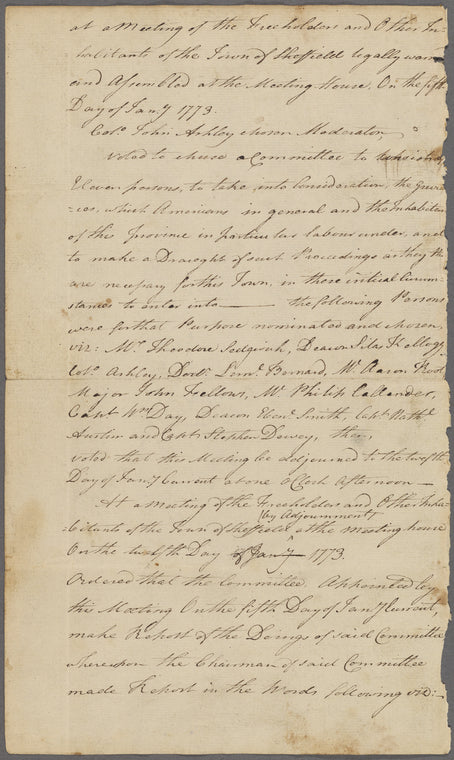 at a Meeting of the Freeholders and Other In-
habitants of the Town of Sheffield legally warn
and Assembled at the Meeting House, On the fifth
Day of Jany 1773.
Colo. John Ashley chosen Moderator,
Voted to chuse a Committee to
Eleven persons, to take into Consideration, the Grievan
=ces, which Americans in general and the Inhabitan
of this Province in particular labour under, and
to make a Draught of such Proceedings as they th
are necessary for this Town, in these critical Circum-
stances to enter into — the following Persons
were for that Purpose nominated and chosen,
viz: Mr. Theodore Sedgwick, Deacon Silas Kellogg
Colo. Ashley, Doctr. Leml. Barnard, Mr. Aaron Root
Major John Fellows, Mr. Philip Callender,
Capt Wm Day, Deacon Ebenr. Smith, Capt. Nathl.
Austin and Capt. Stephen Dewey, then,
voted that this Meeting be adjourned to the twelfth
Day of Jany Current at one oClock afternoon —
At a Meeting of the Freeholders and Other Inha
-bitants of the Town of Sheffield by Adjournment at the meeting house
On the twelfth Day of Jany 1773.
Ordered that the Committee Appointed by
this Meeting On the fifth Day of Jany Current,
make Report of the Doings of said Committee
whereupon the Chairman of said Committee
made Report in the Words following viz:—